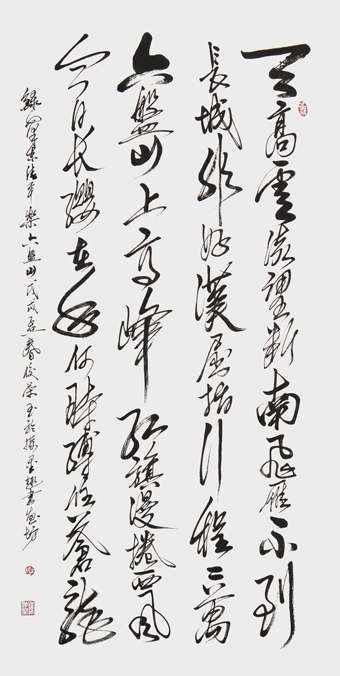 天高雲淡望斷南飛雁不到
長城非好漢屈指行程二萬
六盤山上高峰紅旗漫捲西風
今日長纓在手何時縛住蒼龍
錄澤東清平樂六盤山